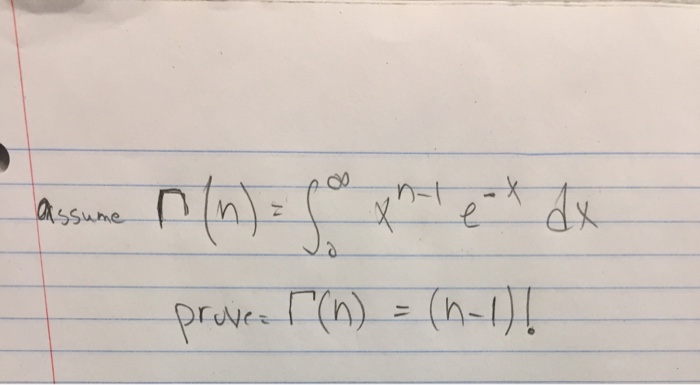 assume Γ(n) = ∫₀^∞ x^(n-1) e^(-x) dx
prove= Γ(n) = (n-1)!